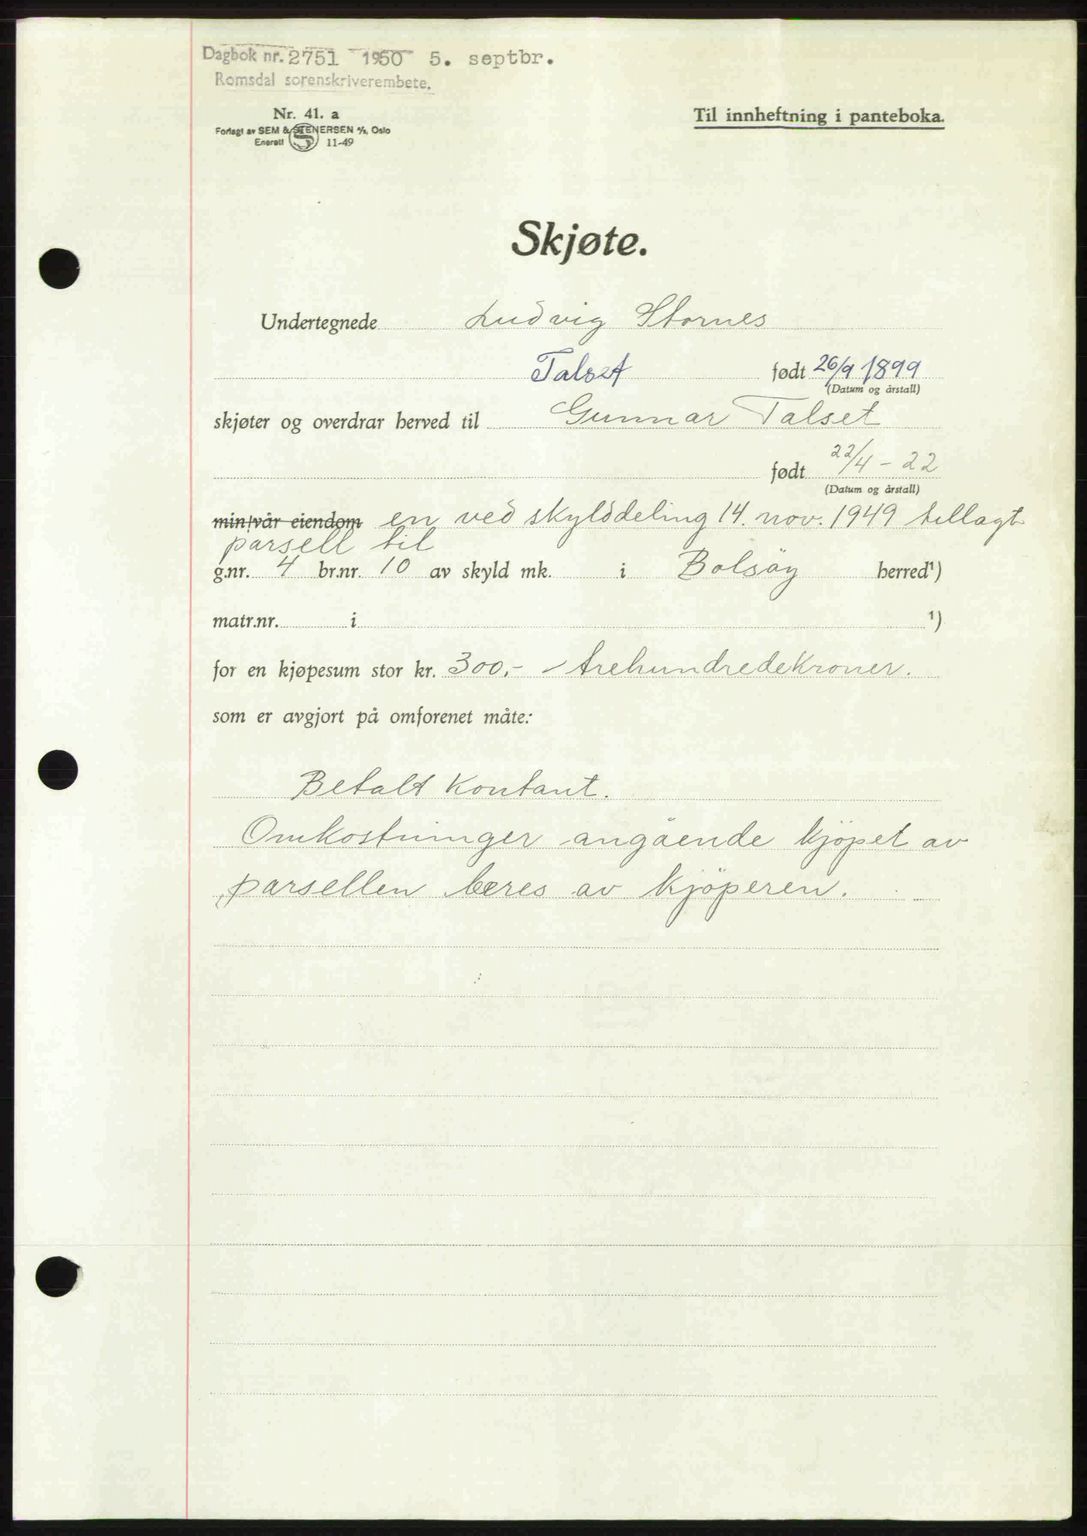 Dagbok nr. 2751 1950 5. septbr.
Romsdal sorenskriverembete.
Nr. 41. a
Forlagt av SEM & STENERSEN A/S, Oslo
Enerett 11-49
Til innheftning i panteboka.
Skjøte.
Undertegnede Ludvig Stornes
Talset født 26/9 1899
(Datum og årstall)
skjøter og overdrar herved til Gunnar Talset
født 22/4 - 22
(Datum og årstall)
min/vår eiendom en ved skylddeling 14. nov. 1949 tillagt
parsell til
g.nr. 4 br.nr. 10 av skyld mk. i Bolsöy herred¹)
matr.nr. i ¹)
for en kjøpesum stor kr. 300,- - trehundredekroner.
som er avgjort på omforenet måte:
Betalt kontant.
Omkostninger angående kjöpet av
parsellen bæres av kjöperen.